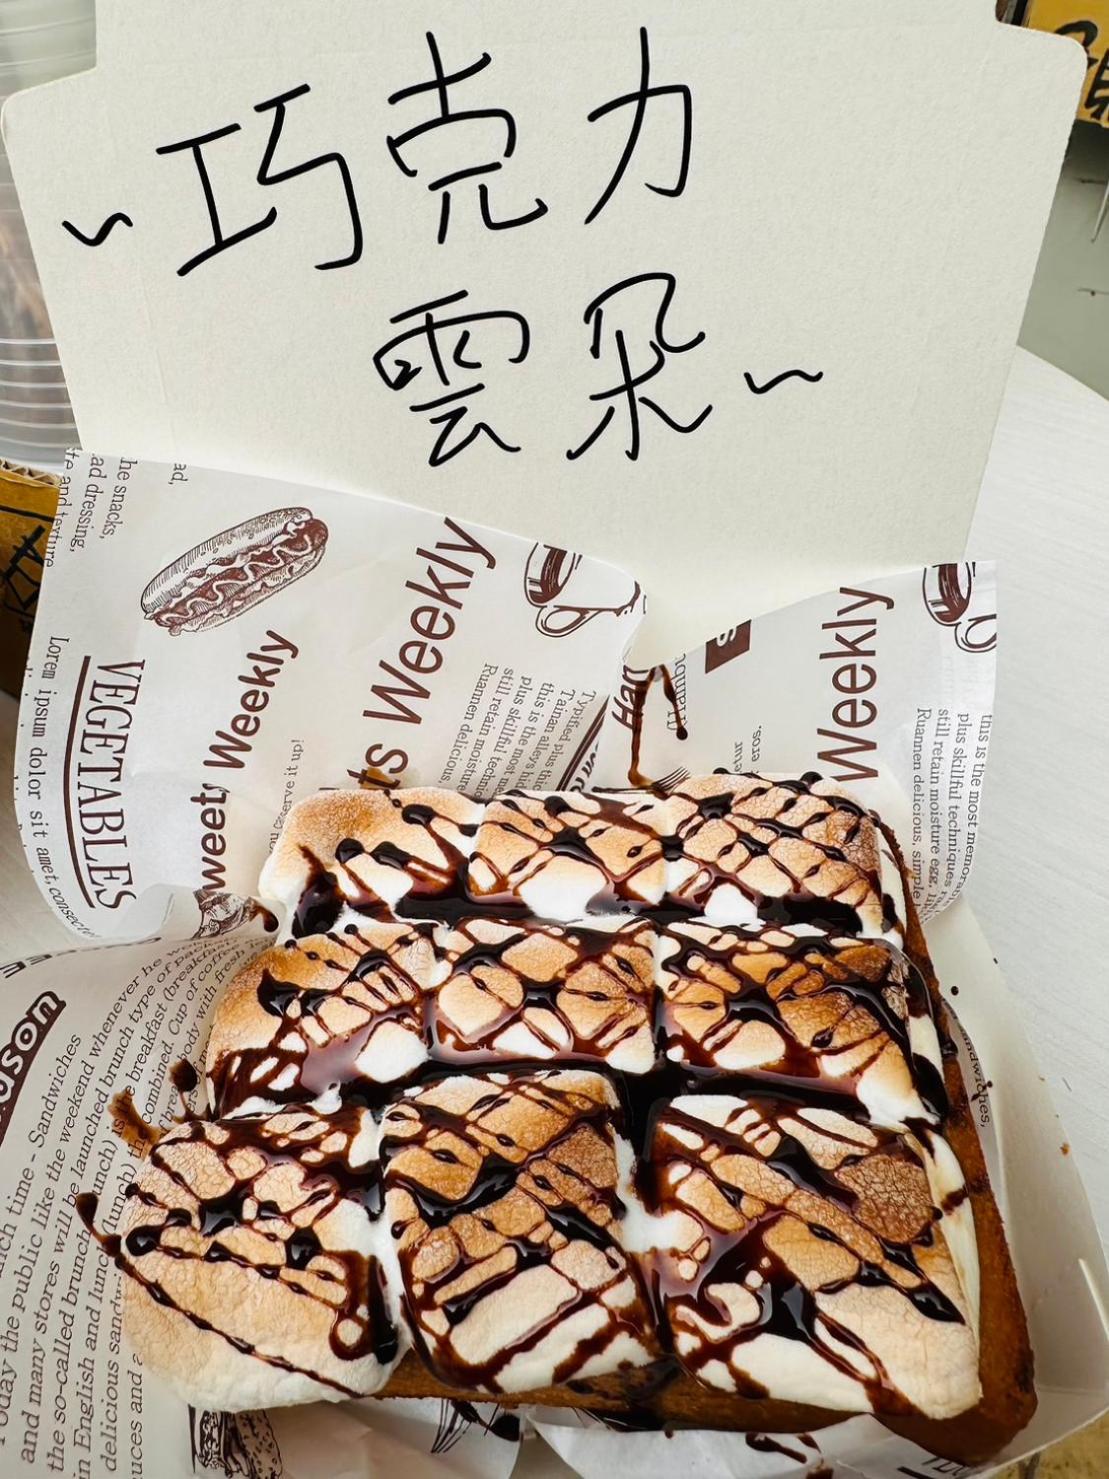 ~巧克力
雲朵~
ad,
he snacks,
ad dressing,
te and texture
Lorem ipsum dolor sit amet, consecte
VEGETABLES
Sweet Weekly
you deserve it up!
ts Weekly
Ruannen delicious
still retain moisture
plus skillful techni
this is the most me
Tainan alleys hid
Typified plus the
Han
Weekly
this is the most memora
plus skillful techniques
still retain moisture egg,
Ruannen delicious, simple
eros.
andwiches,
nch time - Sandwiches
oday the public like the weekend whenever he
and many stores will be launched brunch type of
the so-called brunch (lunch) is breakfast (breakfast
in English and lunch (lunch) the combined. Cup of coffee
delicious sandwi
uces and a
body with fresh